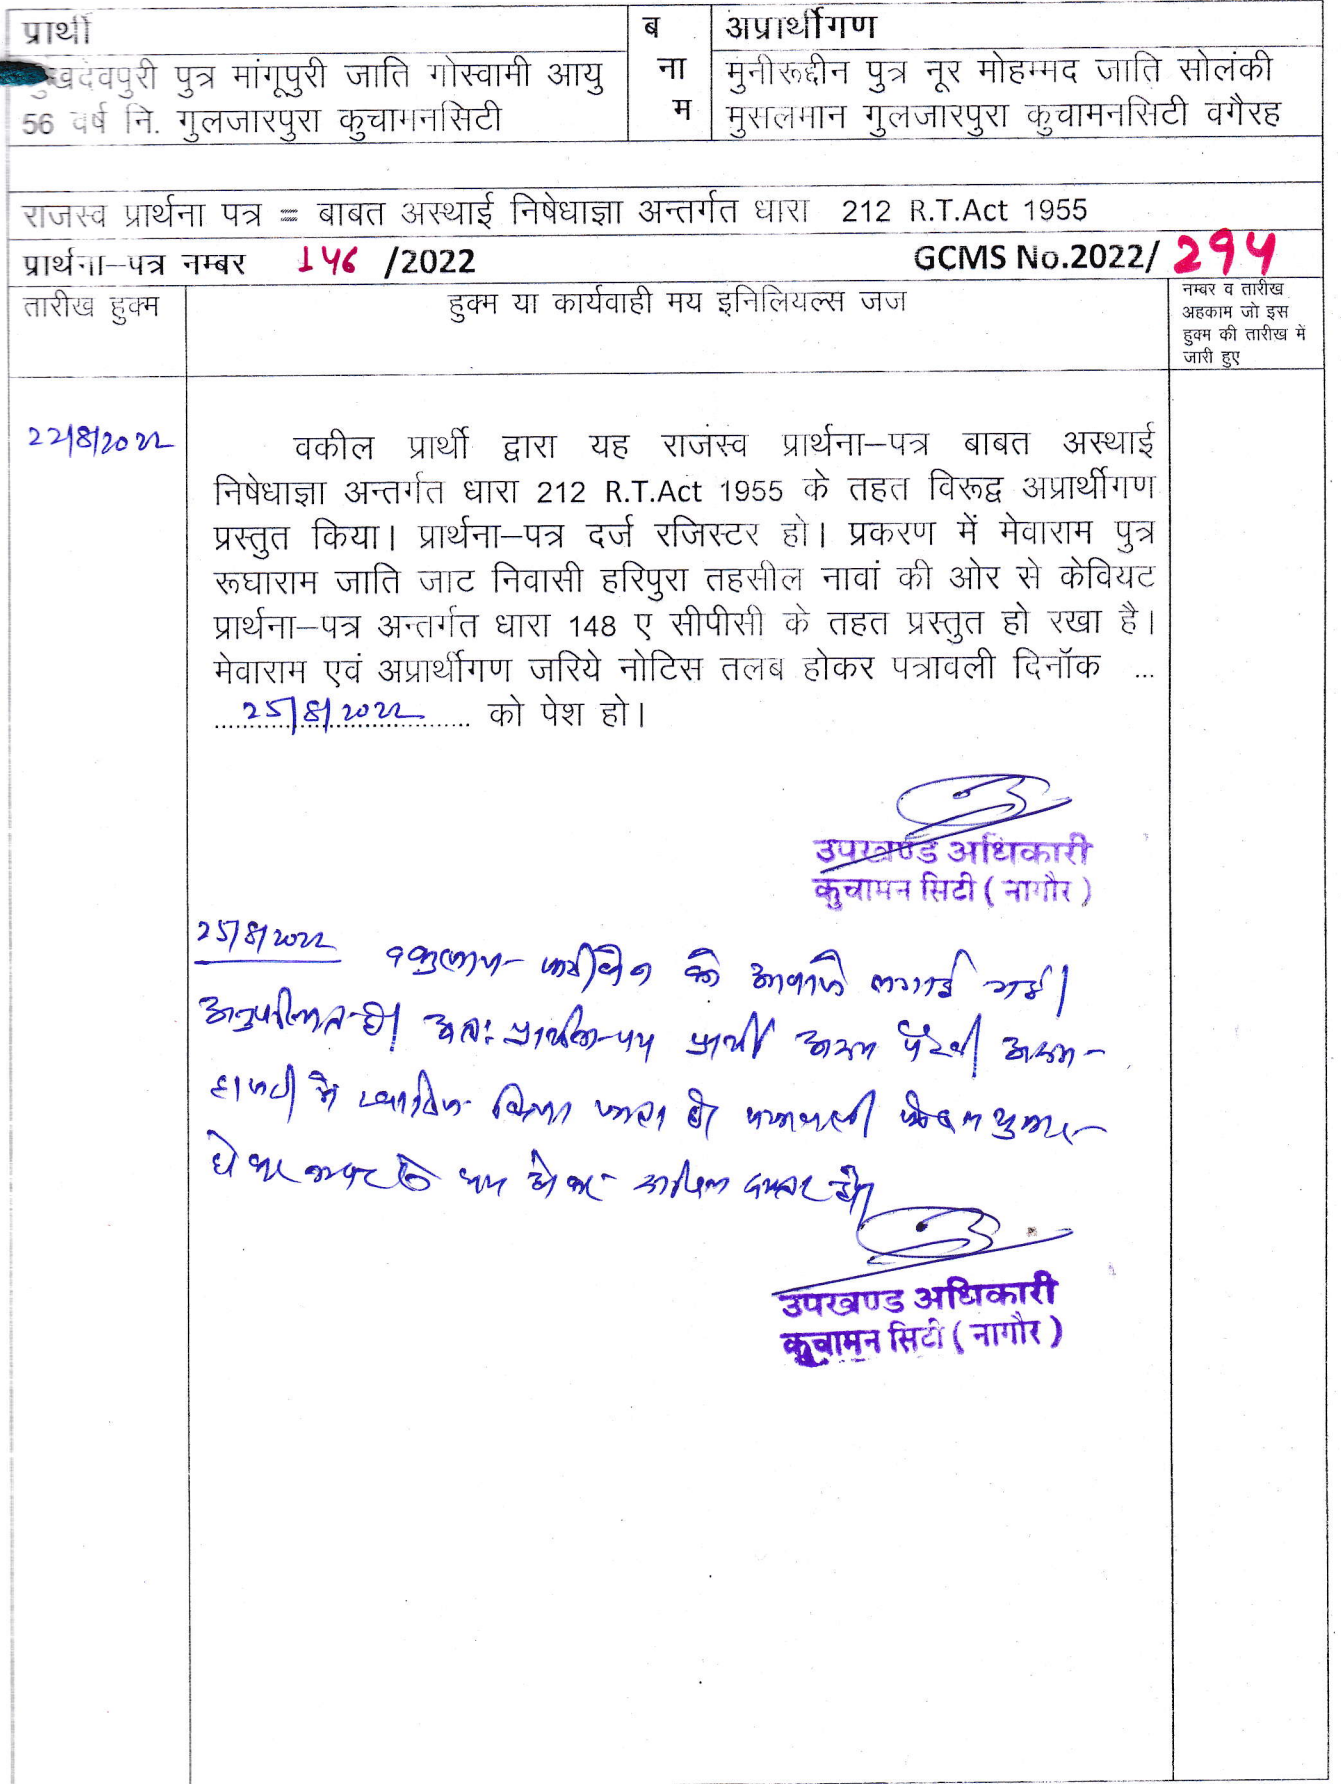 प्रार्थी
ब
ना
म
अप्रार्थीगण
खदेवपुरी पुत्र मांगूपुरी जाति गोस्वामी आयु
56 वर्ष नि. गुलजारपुरा कुचामनसिटी
मुनीरूद्दीन पुत्र नूर मोहम्मद जाति सोलंकी
मुसलमान गुलजारपुरा कुचामनसिटी वगैरह
राजस्व प्रार्थना पत्र = बाबत अस्थाई निषेधाज्ञा अन्तर्गत धारा 212 R.T.Act 1955
प्रार्थना–पत्र नम्बर 146 /2022
GCMS No.2022/ 294
तारीख हुक्म
हुक्म या कार्यवाही मय इनिलियल्स जज
नम्बर व तारीख
अहकाम जो इस
हुक्म की तारीख में
जारी हुए
22/8/2022
वकील प्रार्थी द्वारा यह राजस्व प्रार्थना–पत्र बाबत अस्थाई
निषेधाज्ञा अन्तर्गत धारा 212 R.T.Act 1955 के तहत विरूद्व अप्रार्थीगण
प्रस्तुत किया। प्रार्थना–पत्र दर्ज रजिस्टर हो। प्रकरण में मेवाराम पुत्र
रूघाराम जाति जाट निवासी हरिपुरा तहसील नावां की ओर से केवियट
प्रार्थना–पत्र अन्तर्गत धारा 148 ए सीपीसी के तहत प्रस्तुत हो रखा है।
मेवाराम एवं अप्रार्थीगण जरिये नोटिस तलब होकर पत्रावली दिनॉक ...
25/8/2022 को पेश हो।
उपखण्ड अधिकारी
कुचामन सिटी ( नागौर )
25/8/2022
को आवाजे लगाई गई।
अतः प्रार्थना-पत्र प्रार्थी अदम पैरवी अदम-
में किया जाता है
उपखण्ड अधिकारी
कुचामन सिटी ( नागौर )